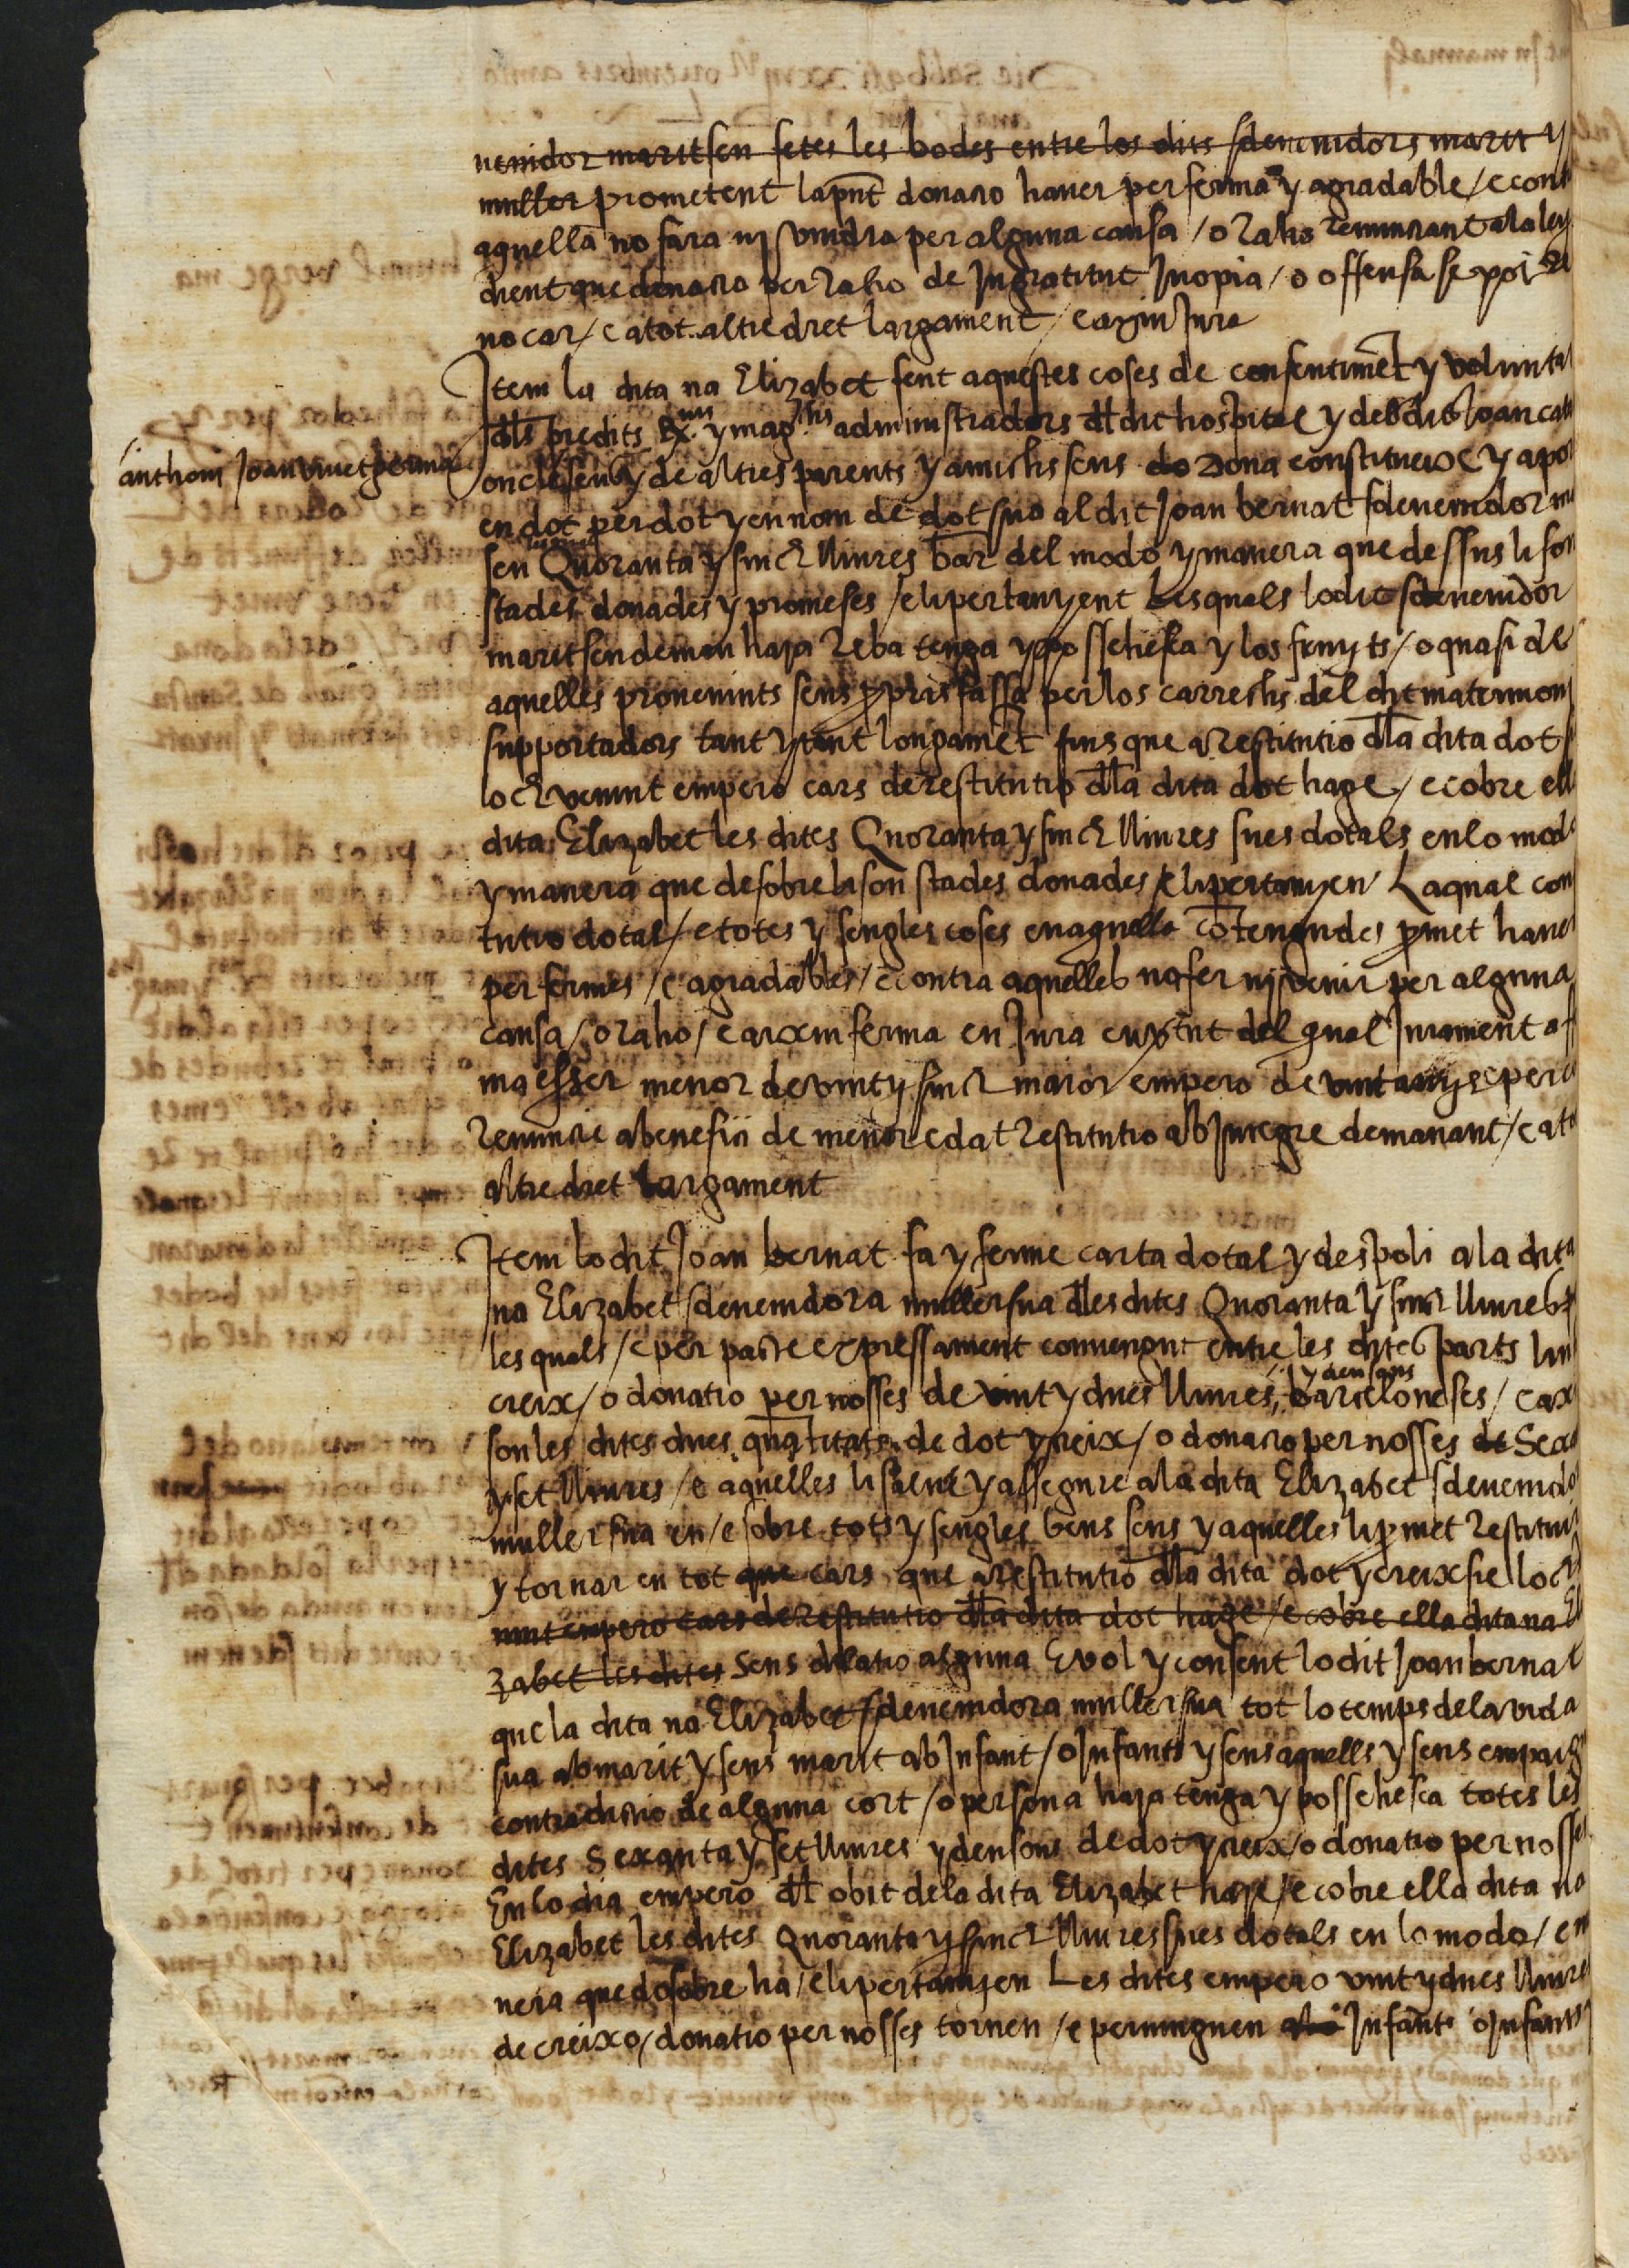 uenidor marit seu fetes les bodes entre los dits sdeuenidors marit y
muller prometent la pnt donatio hauer per ferma y agradable / e cont
aquella no fara nj vindra per alguna causa / o raho renunciant a la ley
dient que donatio per raho de Ingratitut Inopia / o offensa se pot re
uocar / e a tot altre dret largament / e axin Jura
Item la dita na Elizabet fent aquestes coses de consentimēt y volunta
dls predits Ex.ms y mag.chs administradors dl dit hospital y del dit Joan
anthoni Joan viuet germa
oncle seu y de altres parents y amichs seus do Dona constitueix e y apor
en dot per dot y en nom de dot sua al dit Joan bernat sdeuenidor m
seu Quoranta y sinch lliures bar del modo y manera que dessus li son
stades donades y promeses / e li pertanyent Les quals lo dit sdeuenidor
marit seu deman haja reba tenga y possehesca y los fruyts / o quasi de
aquelles prouenints seus ppris fassa per los carrechs del dit matrimonj
supportadors tant y tant longamēt fins que a restitutio dla dita dot s
loch venint empero cars de restitutio dla dita dot hage / e cobre ell
dita Elizabet les dites Quoranta y sinch lliures sues dotals en lo modo
y manera que desobre li son stades donades / e li pertanyen La qual con
tutio dotal / e totes y sengles coses en aquella cōtengudes pmet hauer
per fermes / e agradables / e contra aquelles no fer nj venir per alguna
causa / o raho / e axin ferma en Jura en virtut del qual Jurament af
ma esser menor de vint y sinch maior empero de vint anys e per
renuncie a benefici de menor edat restitutio ab Integre demanant / e a to
altre dret largament
Item lo dit Joan bernat fa y ferme carta dotal y despoli a la dita
na Elizabet sdeuenidora muller sua dles dites Quoranta y sinch lliures
les quals / e per pacte expressament conuengut entre les dites parts lin
y deu sous
creix / o donatio per nosses de vint y dues lliures barceloneses / e ax
son les dites dues quātitats de dot y creix / o donatio per nosses de Sexa
y set lliures / e aquelles li salue y assegure a la dita Elizabet sdeuenido
muller sua en / e sobre tots y sengles bens seus y aquelles li pmet restituir
y tornar en tot que cars que a restitutio dla dita dot y creix sie loch
uint empero cars de restitutio dla dita dot hage / e cobre ella dita na El
zabet les dites Sens dilatio alguna E vol y consent lo dit Joan bernat
que la dita na Elizabet sdeuenidora muller sua tot lo temps de la vida
sua ab marit y sens marit ab Infant / o Infants y sens aquells y sens empaig
contradictio de alguna cort / o persona haja tenga y possehesca totes les
dites Sexanta y set lliures y deu sous de dot y creix / o donatio per nosses
En lo dia empero dl obit de la dita Elizabet haje / e cobre ella dita na
Elizabet les dites Quoranta y sinch lliures sues dotals en lo modo / e m
nera que desobre ha / e li pertanyen Les dites empero vint y dues lliures
de creix o / donatio per nosses tornen / e peruinguen als Infant o Infants